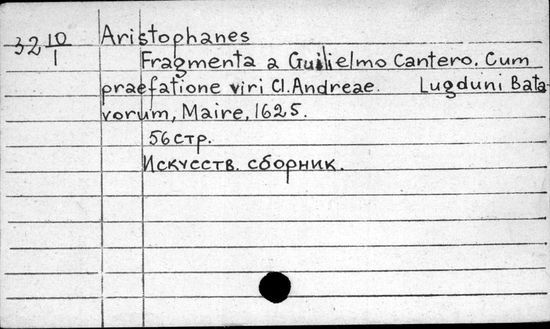 Aristophanes
32 10/1
Fragmenta a Guilielmo Cantero. Cum
praefatione viri Cl. Andreae. Lugduni Bata
vorum, Maire, 1625.
56 стр.
Искусств. сборник.